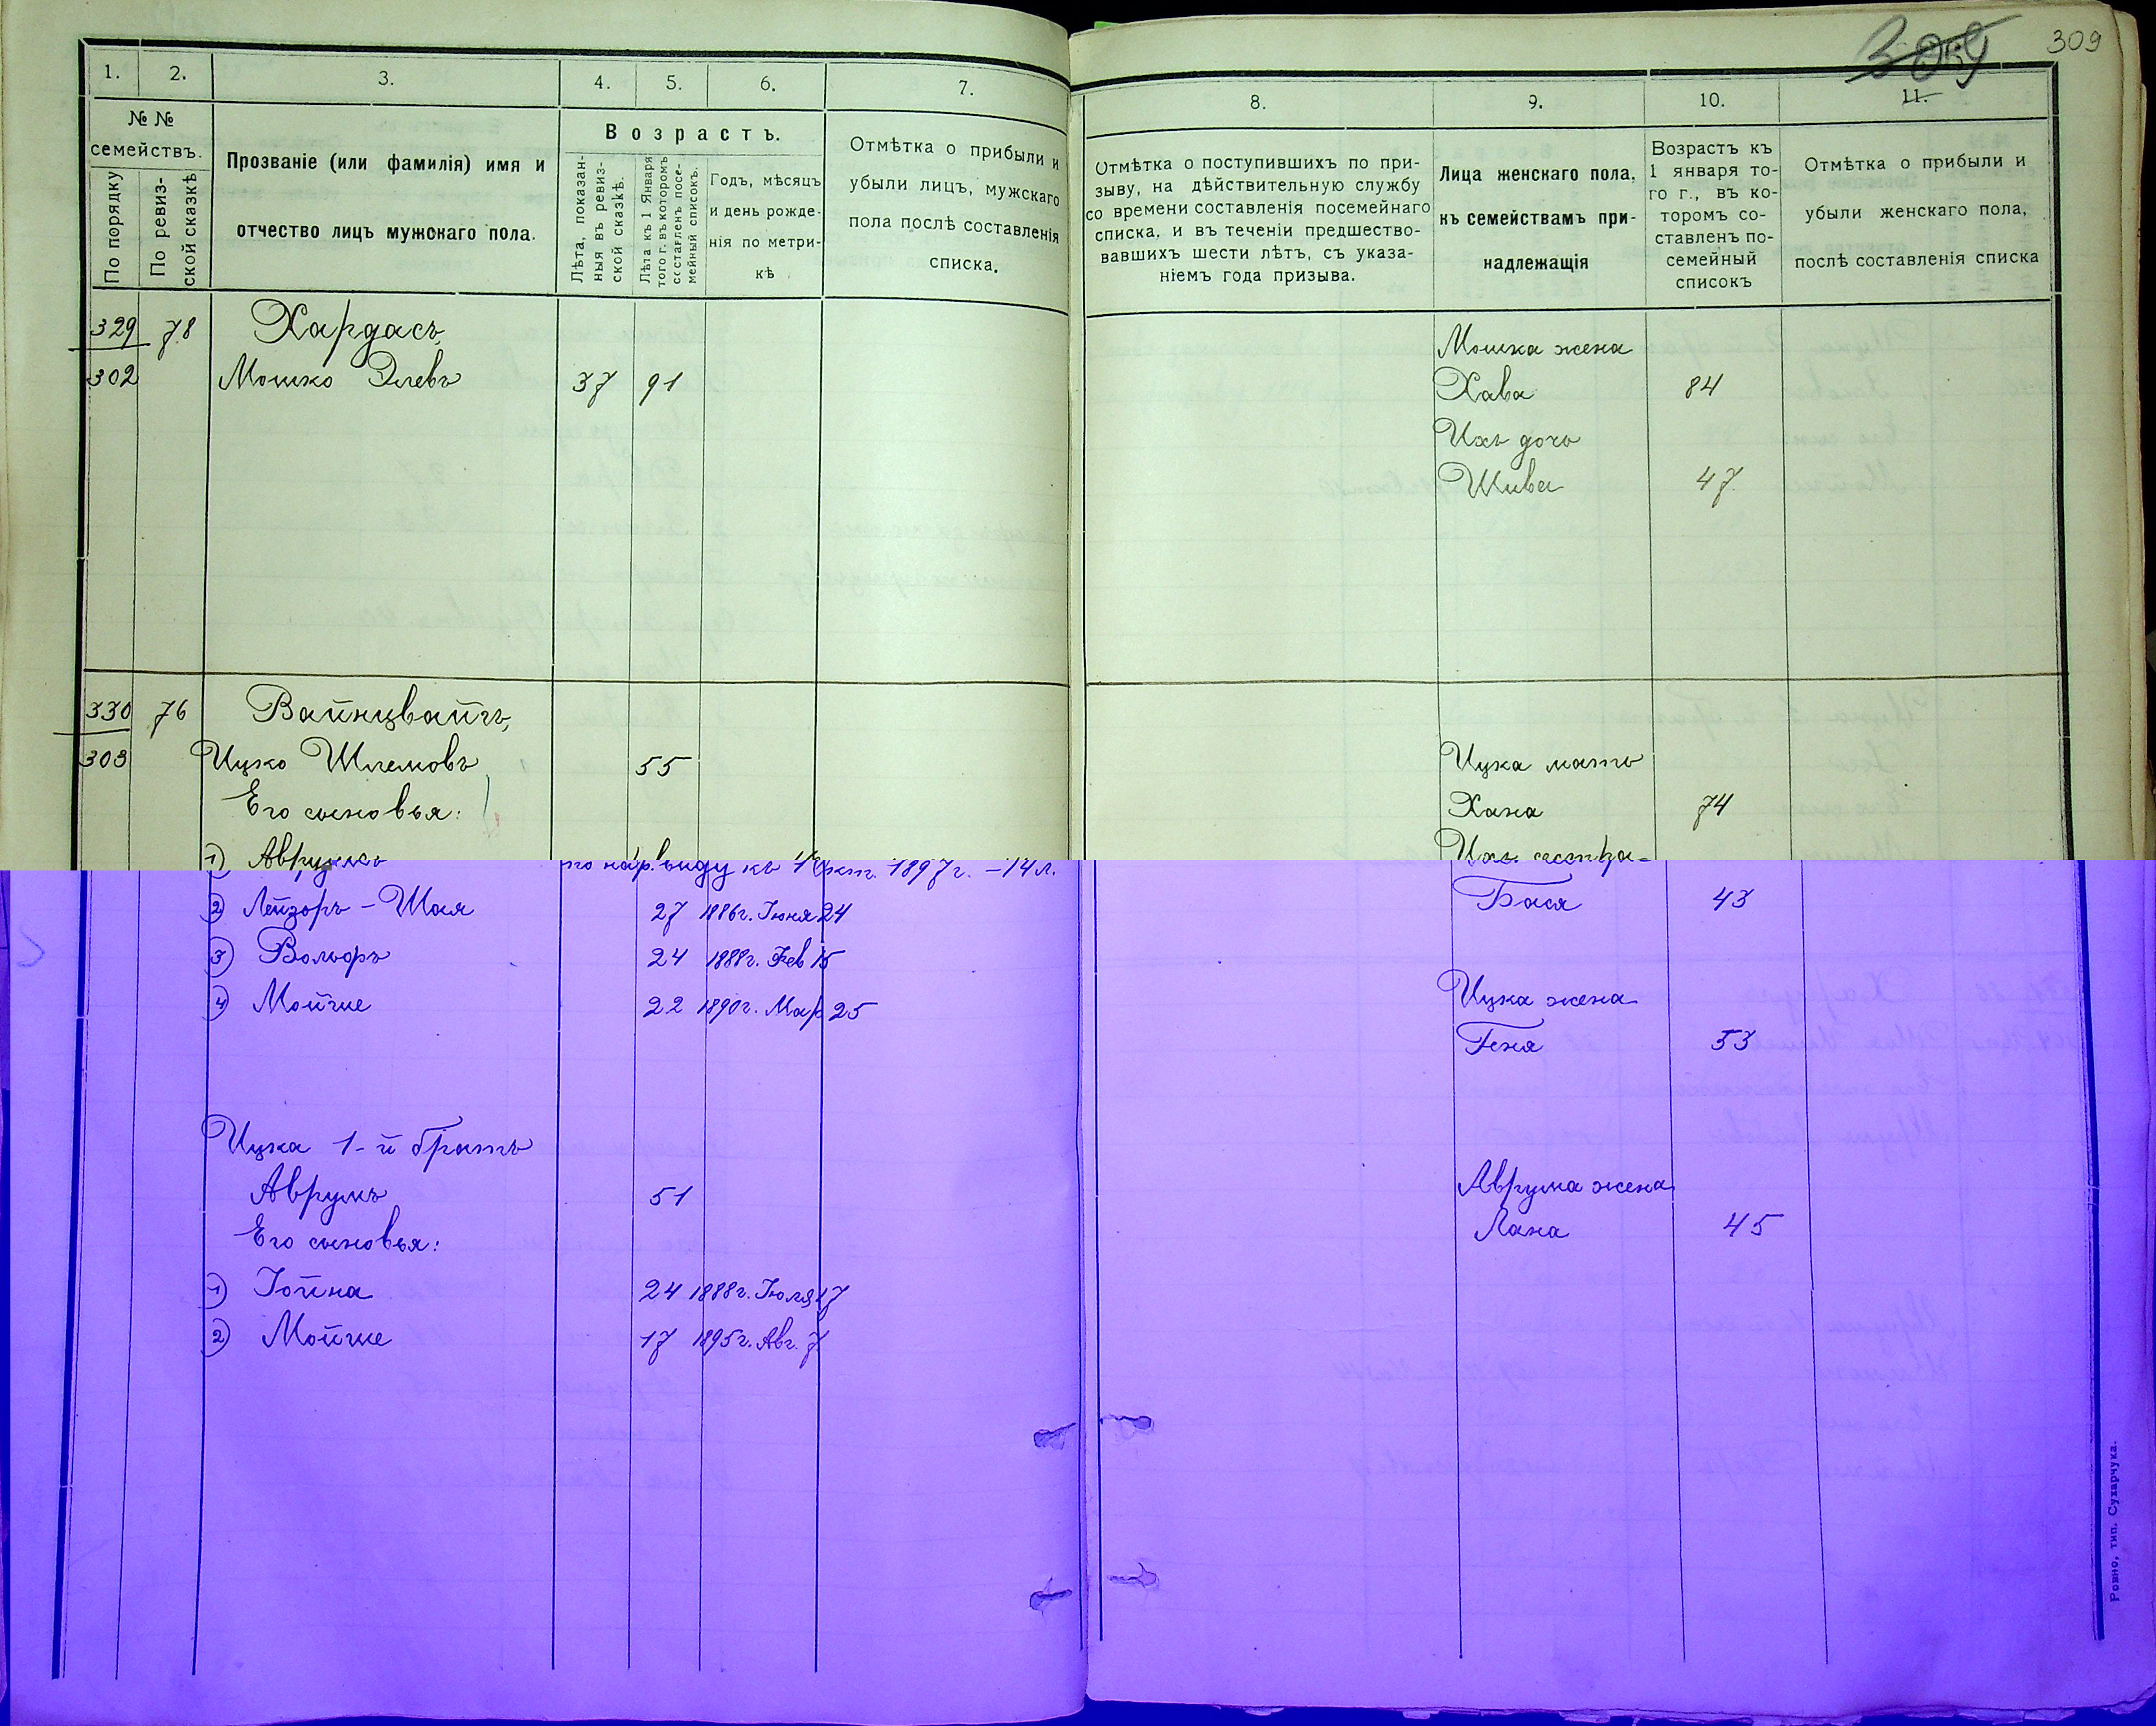 309
309
1.
2.
3.
4.
5.
6.
7.
№ №
семействъ.
По порядку
По ревиз-
ской сказкѣ
Прозваніе (или фамилія) имя и
отчество лицъ мужскаго пола.
Возрастъ.
Лѣта, показан-
ныя въ ревиз-
ской сказкѣ.
Лѣта къ 1 Января
того г. въ которомъ
составленъ посе-
мейный списокъ.
Годъ, мѣсяцъ
и день рожде-
нія по метри-
кѣ
Отмѣтка о прибыли и
убыли лицъ, мужскаго
пола послѣ составленія
списка.
8.
9.
10.
11.
Отмѣтка о поступившихъ по при-
зыву, на дѣйствительную службу
со времени составленія посемейнаго
списка, и въ теченіи предшество-
вавшихъ шести лѣтъ, съ указа-
ніемъ года призыва.
Лица женскаго пола,
къ семействамъ при-
надлежащія
Возрастъ къ
1 января то-
го г., въ ко-
торомъ со-
ставленъ по-
семейный
списокъ
Отмѣтка о прибыли и
убыли женскаго пола,
послѣ составленія списка
329 78 Хардасъ,
302 Мошко Элевъ 37 91
Мошка жена
Хава 84
Ихъ дочь
Шива 47
330 76 Вайнцвайгъ,
303 Ицко Шлемовъ 55
Его сыновья:
1) Аврумъ по нар. виду къ 1 Окт. 1897 г. – 14 л.
2) Лейзоръ – Шая 27 1886 г. Іюня 24
3) Вольфъ 24 1888 г. Фев 15
4) Мойше 22 1890 г. Мар 25
Ицка 1-й братъ
Аврумъ 51
Его сыновья:
1) Іойна 24 1888 г. Іюля 17
2) Мойше 17 1895 г. Авг. 7
Ицка мать
Хана 74
Ихъ сестра
Бася 43
Ицка жена
Геня 53
Аврума жена
Лана 45
Ровно, тип. Сухарчука.